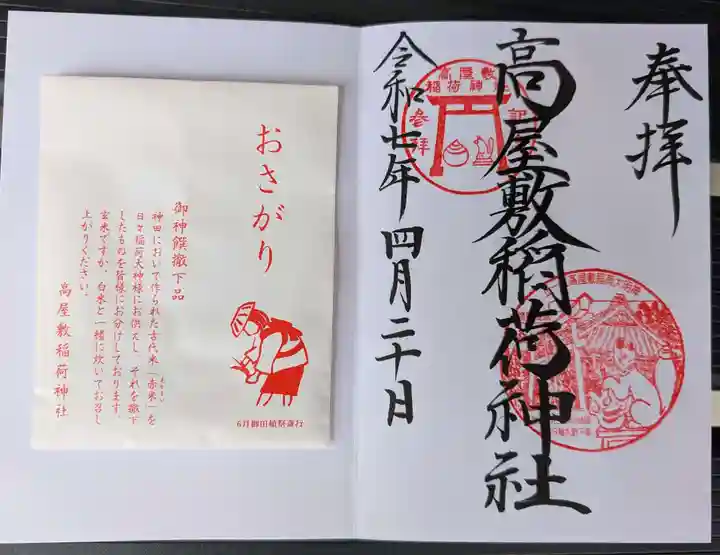 奉拝
高屋敷稲荷神社
令和七年 四月二十日
高屋敷
稲荷神社
参拝
おさがり
御神饌撤下品
神田において作られた古代米「赤米」を
日々稲荷大神様にお供えし、それを撤下
したものを皆様にお分けしております。
玄米ですが、白米と一緒に炊いてお召し
上がりください。
高屋敷稲荷神社
6月御田植祭斎行